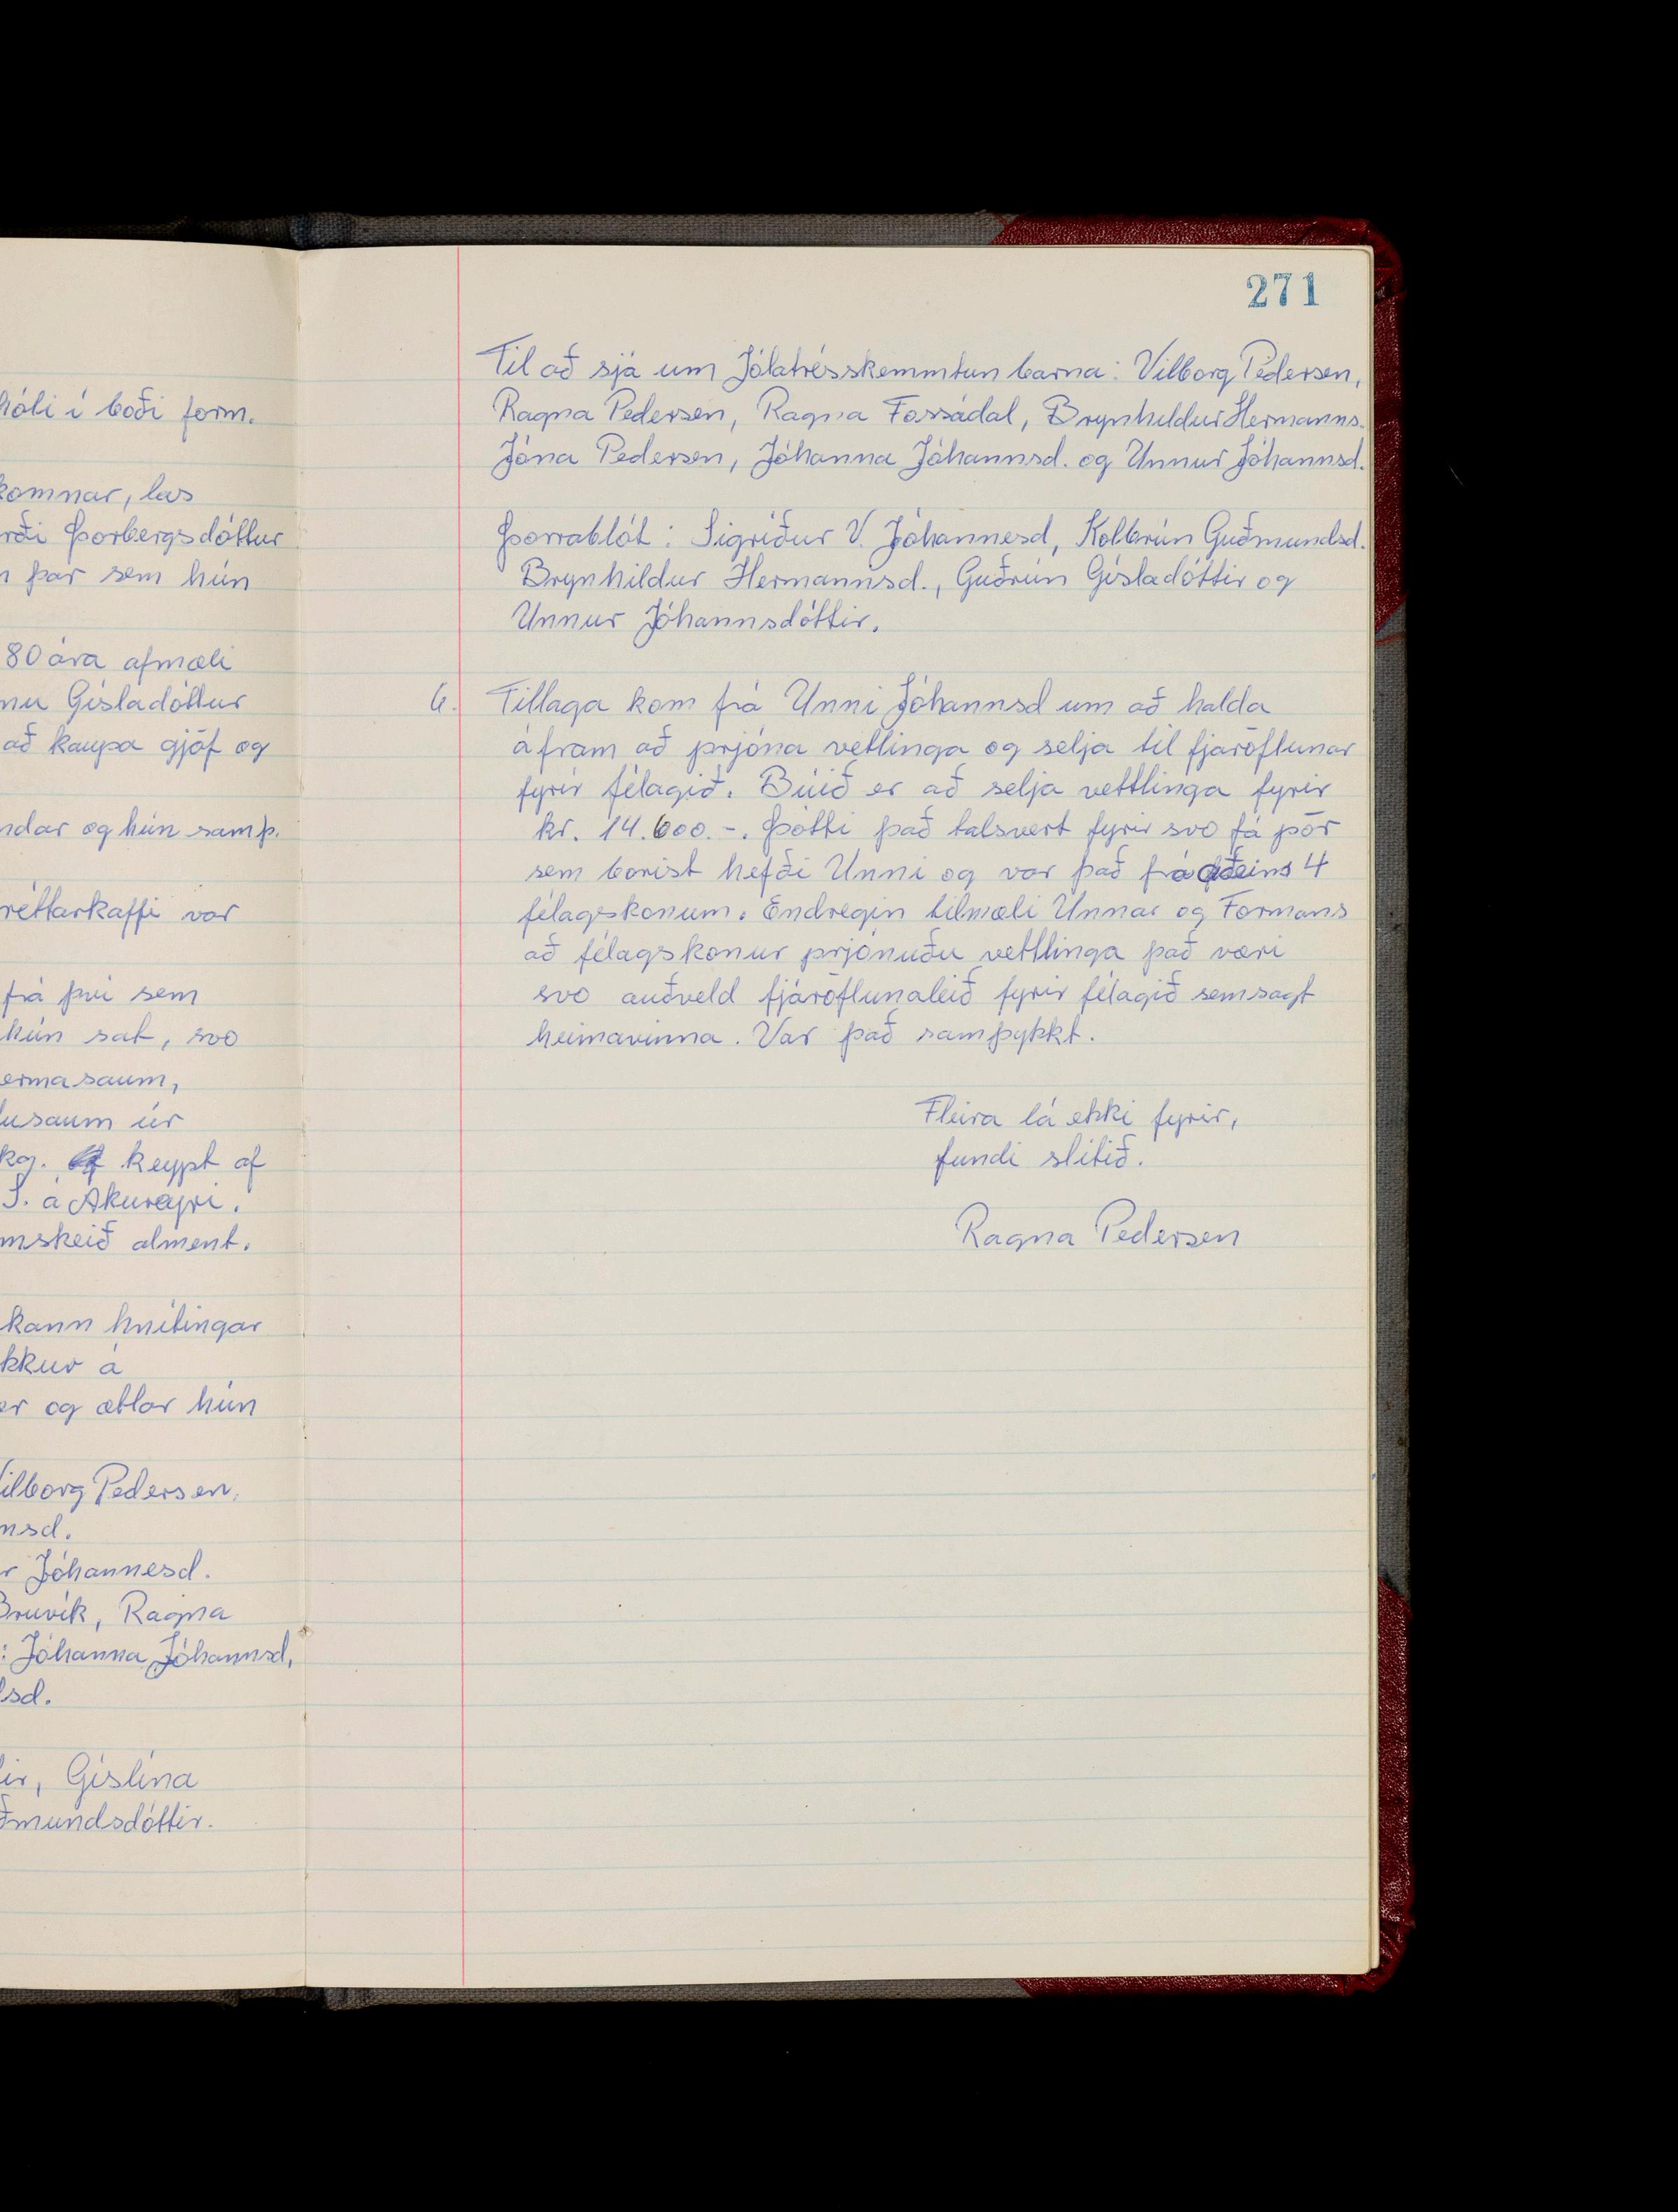 hóli í boði form.
komnar, las
rði Þorbergsdóttur
n þar sem hún
80 ára afmæli
nu Gísladóttur
að kaupa gjöf og
ndar og hún samþ.
réttarkaffi var
frá því sem
hún sat, svo
ermasaum,
lusaum úr
kg. keypt af
S. á Akureyri.
mskeið alment.
kann hnítingar
kkur á
er og ætlar hún
Vilborg Pedersen,
nsd.
r Jóhannesd.
Bruvík, Ragna
: Jóhanna Jóhannsd,
lsd.
ir, Gíslína
ðmundsdóttir.
271
Til að sjá um Jólatrésskemmtun barna: Vilborg Pedersen,
Ragna Pedersen, Ragna Fossádal, Brynhildur Hermanns.
Jóna Pedersen, Jóhanna Jóhannsd. og Unnur Jóhannsd.
Þorrablót: Sigríður V. Jóhannesd, Kolbrún Guðmundsd.
Brynhildur Hermannsd., Guðrún Gísladóttir og
Unnur Jóhannsdóttir.
6. Tillaga kom frá Unni Jóhannsd um að halda
áfram að prjóna vetlinga og selja til fjáröflunar
fyrir félagið. Búið er að selja vettlinga fyrir
kr. 14.600.-. Þótti það talsvert fyrir svo fá pör
sem borist hefði Unni og var það frá aðeins 4
félagskonum. Endregin tilmæli Unnar og Formans
að félagskonur prjónuðu vettlinga það væri
svo auðveld fjáröflunaleið fyrir félagið semsagt
heimavinna. Var það samþykkt.
Fleira lá ekki fyrir,
fundi slitið.
Ragna Pedersen